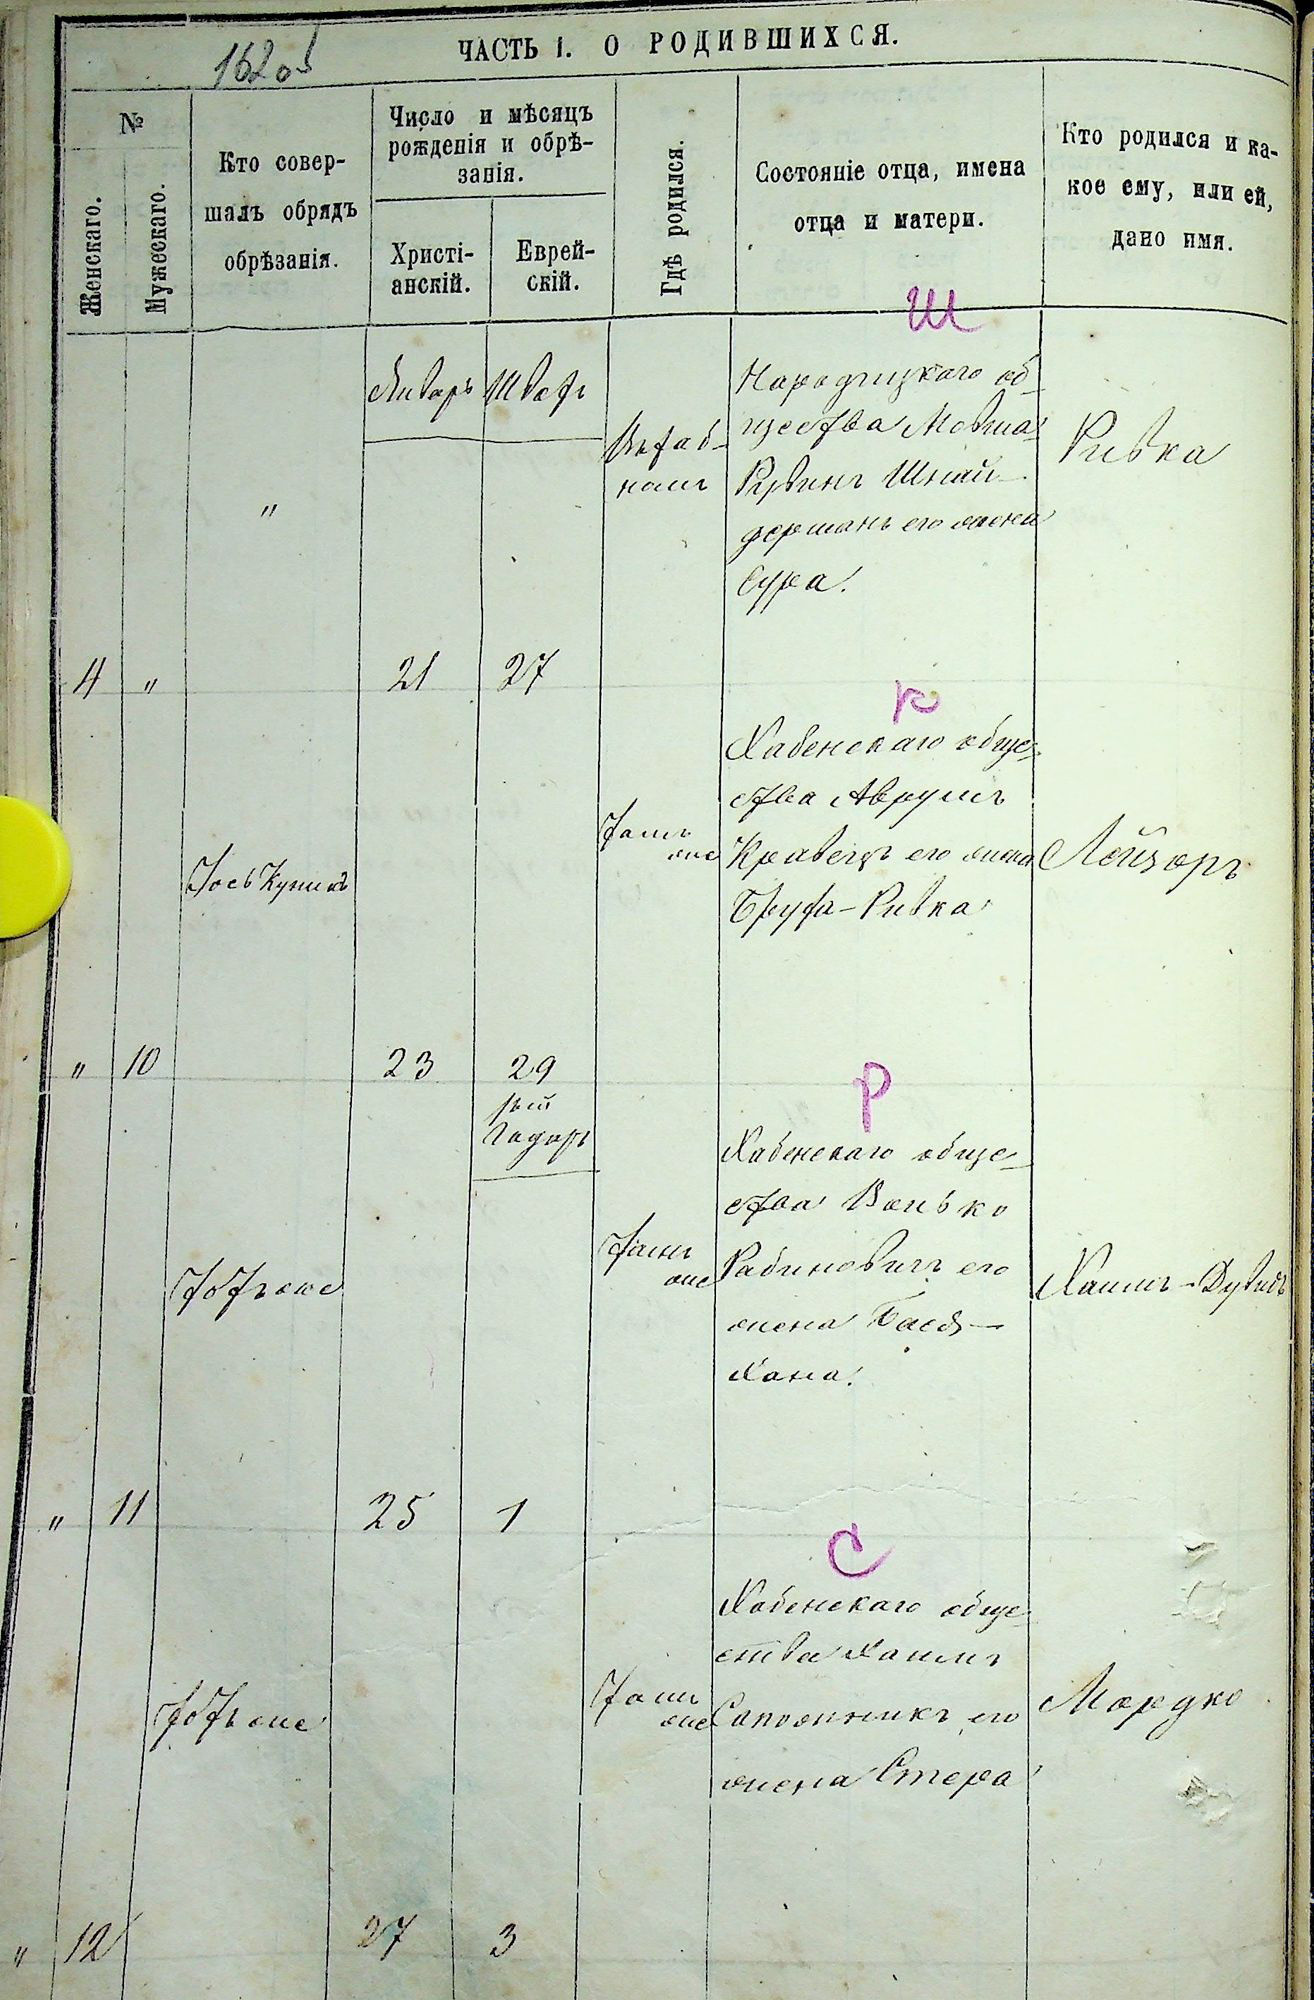 162об
ЧАСТЬ I. О РОДИВШИХСЯ.
№
Женскаго.
Мужескаго.
Кто совер-
шалъ обрядъ
обрѣзанія.
Число и мѣсяцъ
рожденія и обрѣ-
занія.
Христі-
анскій.
Еврей-
скій.
Гдѣ родился.
Состояніе отца, имена
отца и матери.
Кто родился и ка-
кое ему, или ей,
дано имя.
Ш
4
"
"
Январь
21
Шватъ
27
Въ Хаб-
номъ
Народицкаго об-
щества Мовша
Рувинъ Шнай-
дерманъ его жена
Сура
Ривка
К
"
10
Іось Купикъ
23
29
тамъ
же
Хабенскаго обще-
ства Аврумъ
Кравецъ его жена
Фруга-Ривка
Лейзоръ
Р
"
11
тотъже
25
Гадаръ
1
тамъ
же
Хабенскаго обще-
ства Волько
Рабиновичъ его
жена Бася-
Хана
Хаимъ-Дувидъ
С
"
12
тотъже
27
3
тамъ
же
Хабенскаго обще-
ства Хаимъ
Сапожникъ его
жена Стера
Мордко